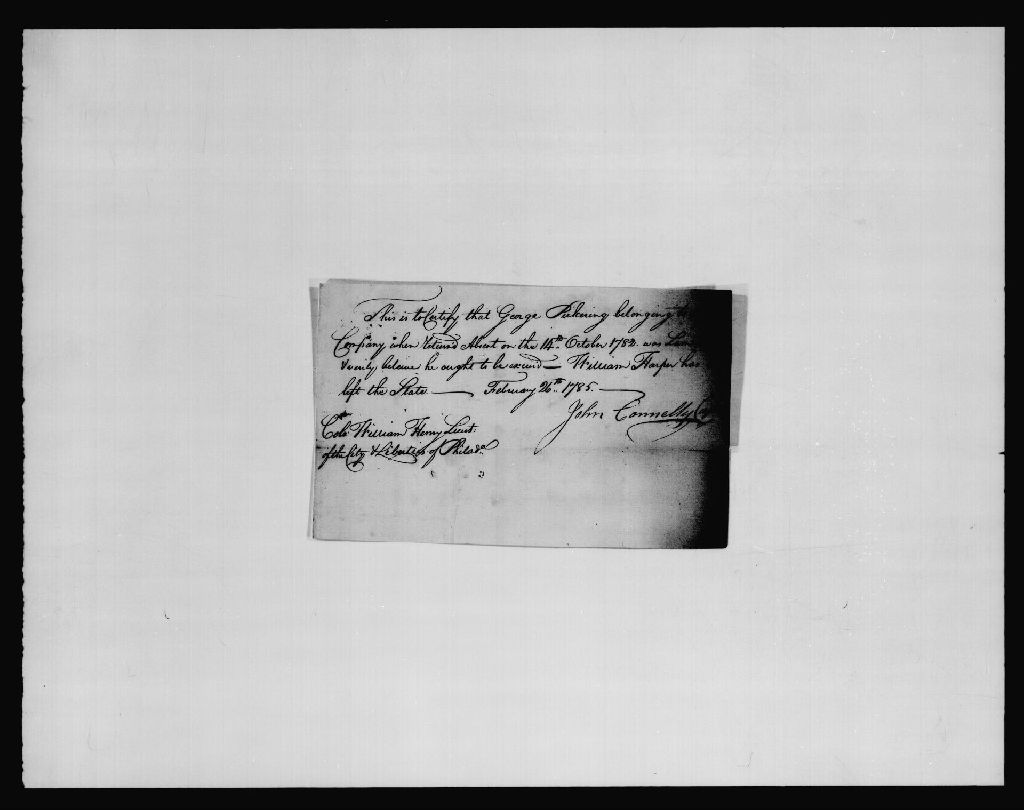 This is to Certify that George Pickering belonging to
Company when Returnd Absent on the 14th October 1782 was
Verily beleive he ought to be excusd — William Harper has
left the State — February 26th 1785 —
John Connelly
To
Colo William Henry Lieut.
of the City & Liberties of Philada